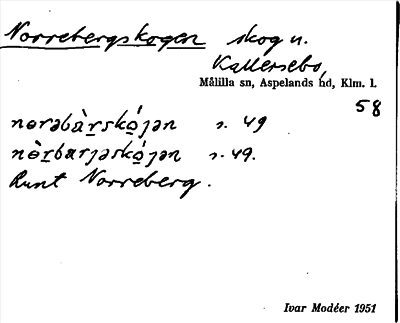 Norrebergskogen skog u.
Kallersebo,
Målilla sn, Aspelands hd, Klm. l.
58
norəbàrskójən s. 49
nòrbarjəskójən s. 49.
Runt Norreberg.
Ivar Modéer 1951